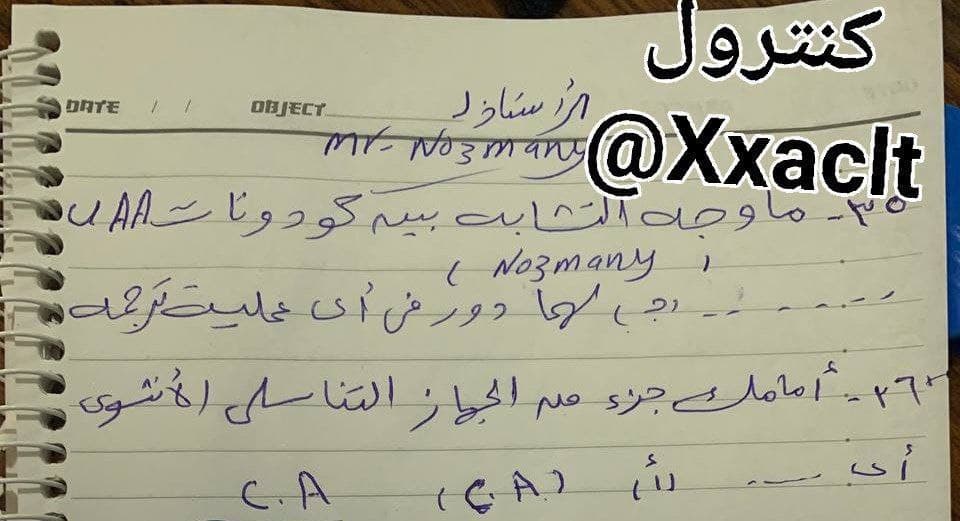 كنترول
@Xxaclt
DATE / / OBJECT
الأستاذ /
Mr- Nozmany
٣٥- ما وجه التشابه بين كودونات UAA
( Nozmany )
...... (ج) لها دور في أي عملية ترجمة
٣٦- أمامك جزء من الجهاز التناسلي الأنثوى
أى ..... (أ) (C.A) C.A